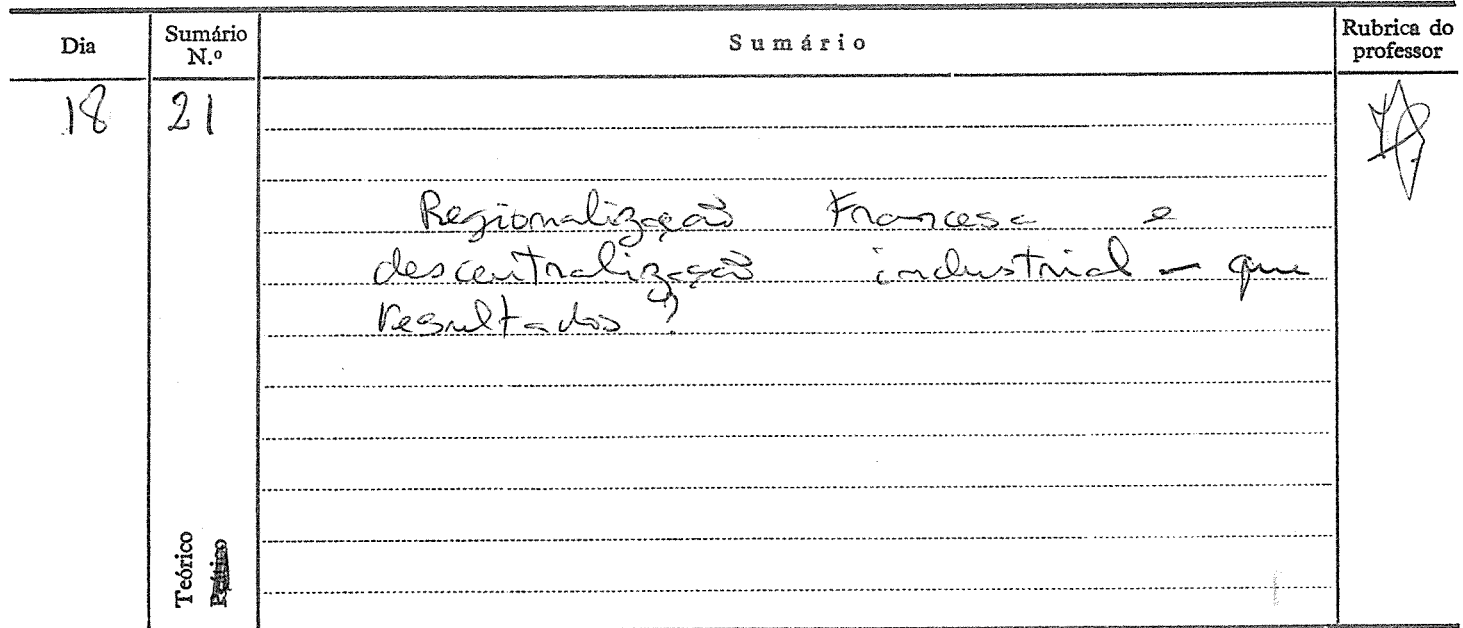 Dia Sumário N.º Sumário Rubrica do professor
18 21
Regionalização Francesa e
descentralização industrial - que
resultados?
Teórico